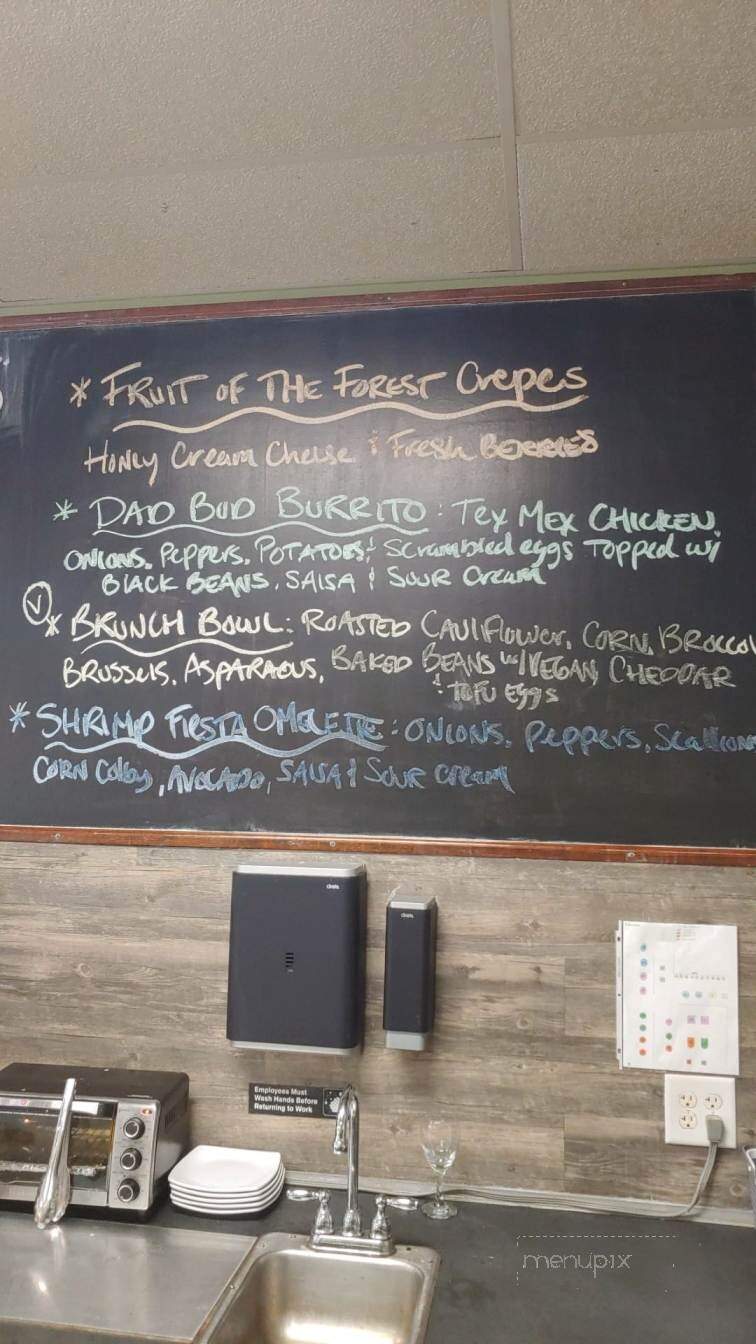 * FRUIT OF THE FOREST Crepes
Honey Cream Cheese & Fresh BERRIES
* DAD BOD BURRITO: Tex Mex CHICKEN,
ONIONS, Peppers, POTATOES & Scrambled eggs Topped w/
BLACK BEANS, SALSA & SOUR Cream
V * BRUNCH BOWL: ROASTED CAULIFlower, CORN, BROCCOL
BRUSSELS, ASPARAGUS, BAKED BEANS w/ VEGAN CHEDDAR
& TOFU Eggs
* SHRIMP FIESTA OMELETTE: ONIONS, Peppers, Scallions
CORN Colby, AVOCADO, SALSA & SOUR Cream
Employees Must
Wash Hands Before
Returning to Work
menupix